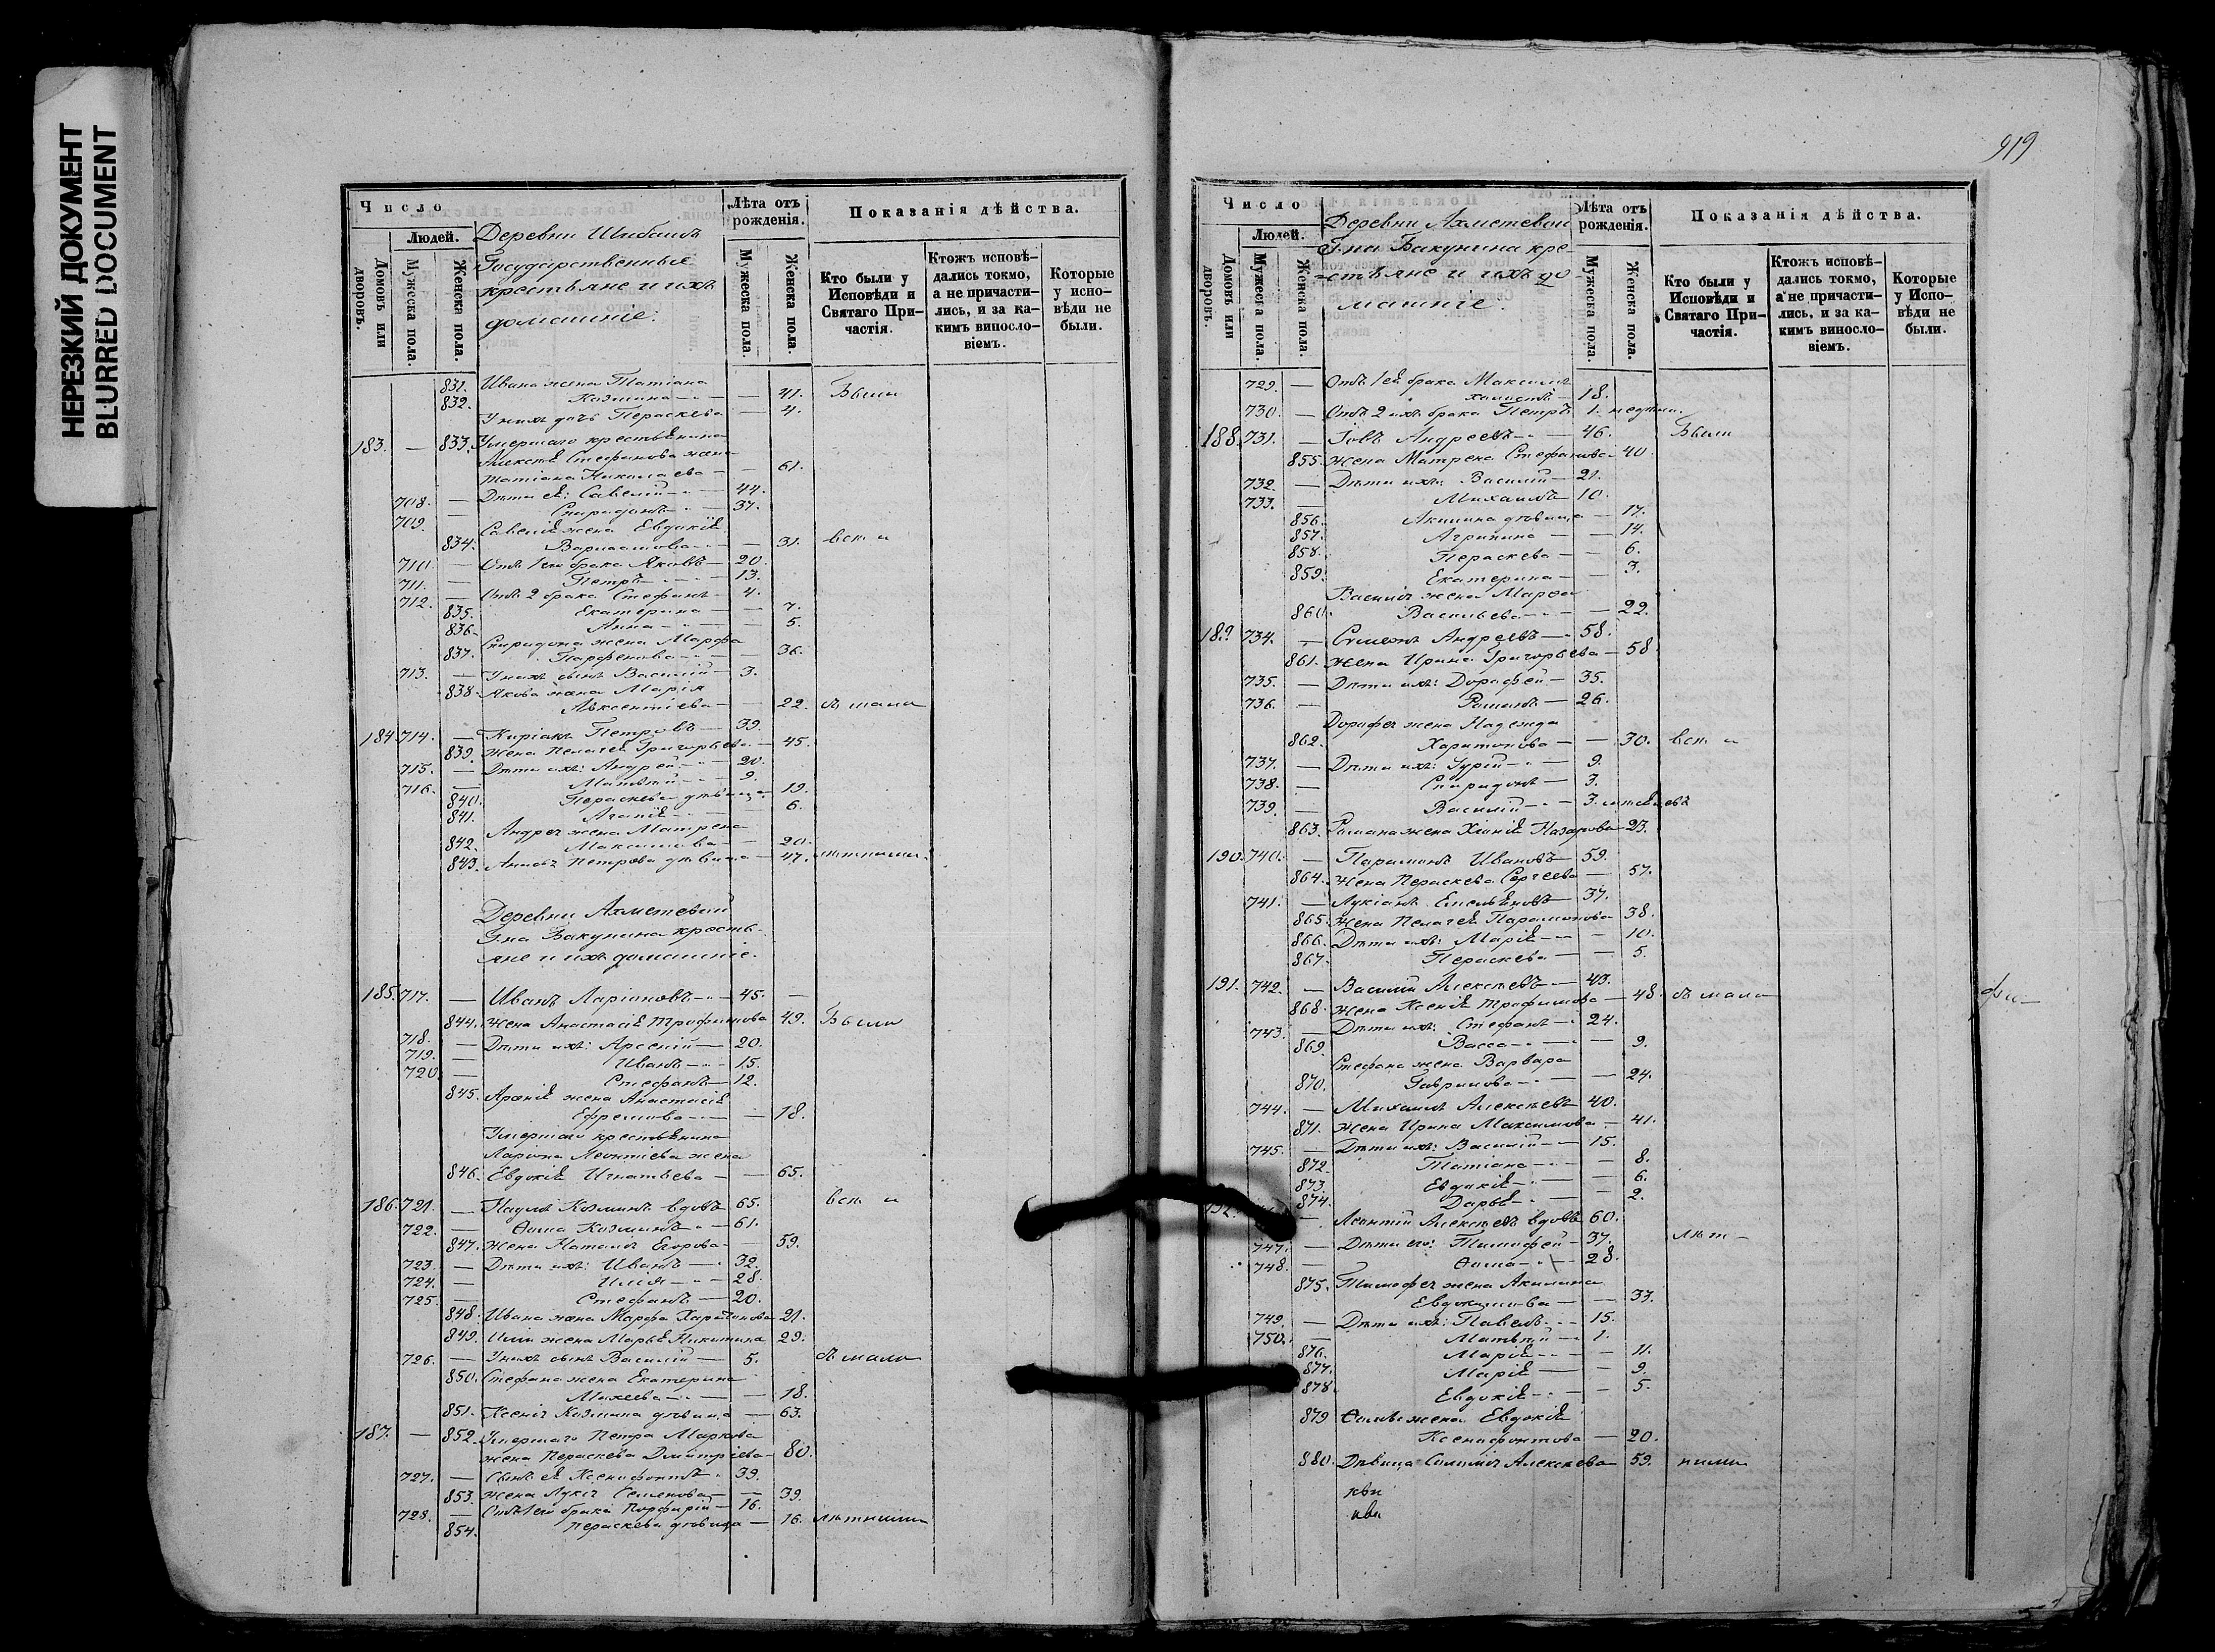 НЕРЕЗКИЙ ДОКУМЕНТ
BLURRED DOCUMENT
Число
Людей.
Домовъ или дворовъ.
Мужеска пола.
Женска пола.
Деревни
Государственные
крестьяне и ихъ
домашніе.
Лѣта отъ рожденія.
Мужеска пола.
Женска пола.
Показанія дѣйства.
Кто были у Исповѣди и Святаго Причастія.
Ктожъ исповѣдались токмо, а не причастились, и за какимъ винословіемъ.
Которые у исповѣди не были.
831. Ивана жена Татіана
832. Козмина — 41. Были
У нихъ дочь Параскева — 4.
183. — 833. Умершаго крестьянина
Алексѣя Стефанова жена
Татіана Николаева — 61.
708. — Дѣти ея: Савелій — 44.
709. — Спиридонъ — 37.
Савелія жена Евдокія
834. — 31.
710. — Отъ 1го брака Яковъ — 20.
711. — Петръ — 13.
712. — Отъ 2 брака Стефанъ — 4.
835. Екатерина — 7.
836. Анна — 5.
Спиридона жена Марфа
837. Парфенова — 36.
713. — У нихъ сынъ Василій — 3.
838. Якова жена Марія
Авксентіева — 22.
184. 714. — Киріакъ Петровъ — 39.
839. Жена Пелагея Григорьева — 45.
715. — Дѣти ихъ: Андрей — 20.
716. — Матвѣй — 9.
840. Параскева дѣвица — 19.
841. Агапія — 6.
Андрея жена Матрена
842. Максимова — 20.
843. Петрова дѣвица — 47.
Деревни Ахметевой
Г-на Бакунина кресть-
яне и ихъ домашніе.
185. 717. — Иванъ Ларіоновъ — 45. —
844. Жена Анастасія Трофимова 49. Были
718. — Дѣти ихъ: Арсеній — 20.
719. — Иванъ — 15.
720. — Стефанъ — 12.
845. Арсенія жена Анастасія
Ефремова — 18.
Умершаго крестьянина
Ларіона Леонтіева жена
846. Евдокія Игнатьева — 65.
186. 721. — Наумъ Козминъ вдовъ — 65.
722. — Ѳома Козминъ — 61.
847. Жена Наталія Егорова — 59.
723. — Дѣти ихъ: Иванъ — 32.
724. — Илія — 28.
725. — Стефанъ — 20.
848. Ивана жена Марфа Харитонова 21.
849. Иліи жена Марья Никитина 29.
726. — У нихъ сынъ Василій — 5.
850. Стефана жена Екатерина
Михеева — 18.
851. Ксенія Козмина дѣвица — 63.
187. — 852. Умершаго Петра Маркова
жена Параскева Дмитріева — 80.
727. — Сынъ ея Ксенофонтъ — 39.
853. Жена Лукія Семенова — 39.
728. — Отъ 1го брака Порфирій — 16.
854. Параскева дѣвица — 16. лѣтними
919
Число
Людей.
Домовъ или дворовъ.
Мужеска пола.
Женска пола.
Деревни Ахметевой
Г-на Бакунина кре-
стьяне и ихъ до-
машніе.
Лѣта отъ рожденія.
Мужеска пола.
Женска пола.
Показанія дѣйства.
Кто были у Исповѣди и Святаго Причастія.
Ктожъ исповѣдались токмо, а не причастились, и за какимъ винословіемъ.
Которые у Исповѣди не были.
729. — Отъ 1го брака Максимъ
холостъ — 18.
730. — Отъ 2 ихъ брака Петръ 1. недѣли.
188. 731. — Іовъ Андреевъ — 46. Были
855. Жена Матрена Стефанова — 40.
732. — Дѣти ихъ: Василій — 21.
733. — Михаилъ — 10.
856. Акилина дѣвица — 17.
857. Агрипина — 14.
858. Параскева — 6.
859. Екатерина — 3.
Василія жена Марфа
860. Васильева — 22.
189. 734. — Симеонъ Андреевъ — 58.
861. Жена Ирина Григорьева — 58
735. — Дѣти ихъ: Дорофей — 35.
736. — Романъ — 26.
Дорофея жена Надежда
862. Харитонова — 30.
737. — Дѣти ихъ: Гурій — 9.
738. — Спиридонъ — 3.
739. — Василій — 3. мѣсяцевъ
863. Романа жена Хіонія Назарова 23.
190. 740. — Парамонъ Ивановъ — 59.
864. Жена Параскева Сергеева — 57.
741. — Лукіанъ Емельяновъ — 37.
865. Жена Пелагея Парамонова 38.
866. Дѣти ихъ: Марія — 10.
867. Параскева — 5.
191. 742. — Василій Алексѣевъ — 43.
868. Жена Ксенія Трофимова — 48.
743. — Дѣти ихъ: Стефанъ — 24.
869. Васса — 9.
Стефана жена Варвара
870. Гаврилова — 24.
744. — Михаилъ Алексѣевъ 40.
871. Жена Ирина Максимова — 41.
745. — Дѣти ихъ: Василій — 15.
872. Татіана — 8.
873. Евдокія — 6.
874. Дарья — 2.
192. — Леонтій Алексѣевъ вдовъ 60.
747. — Дѣти его: Тимофей — 37. лѣт-
748. — Ѳома — 28.
875. Тимофея жена Акилина
Евдокимова — 33.
749. — Дѣти ихъ: Павелъ — 15.
750. — Матвѣй — 1.
876. Марія — 11.
877. Марія — 9.
878. Евдокія — 5.
879 Ѳомы жена Евдокія
Ксенофонтова — 20.
880. Дѣвица Соломія Алексѣева 59. ними